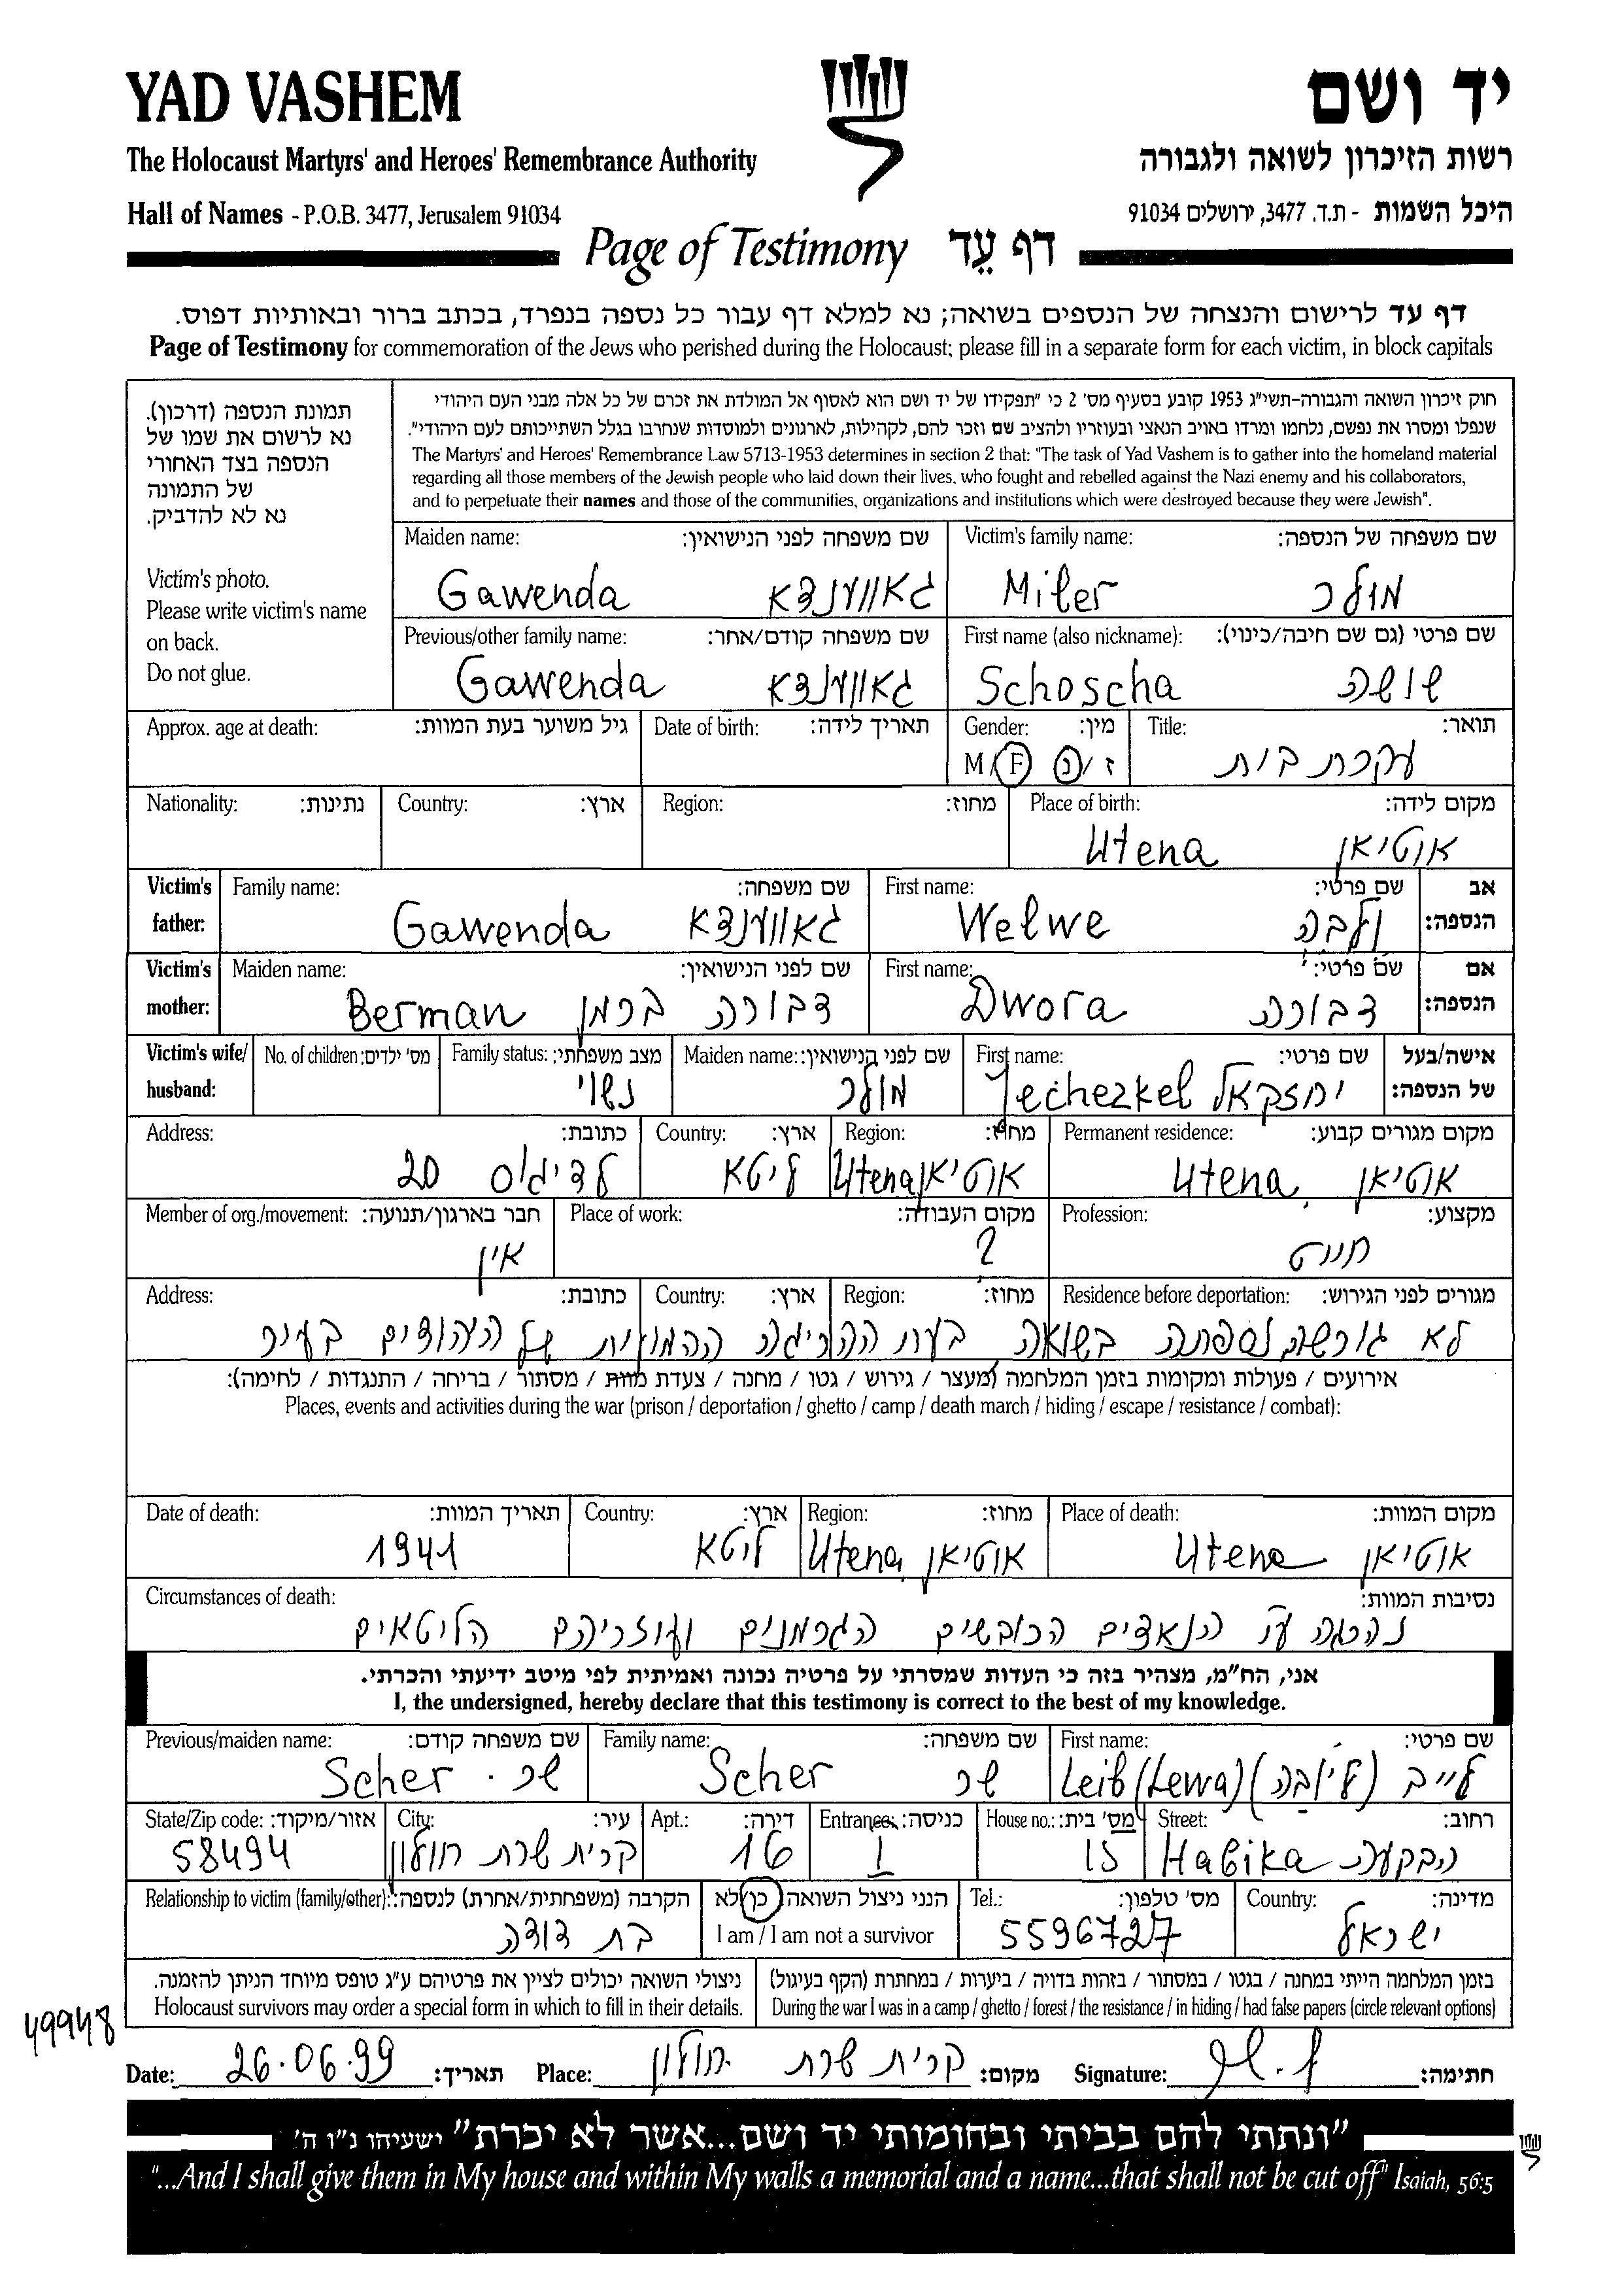 YAD VASHEM
יד ושם
The Holocaust Martyrs' and Heroes' Remembrance Authority
רשות הזיכרון לשואה ולגבורה
Hall of Names - P.O.B. 3477, Jerusalem 91034
היכל השמות - ת.ד. 3477, ירושלים 91034
Page of Testimony דף עֵד
דף עד לרישום והנצחה של הנספים בשואה; נא למלא דף עבור כל נספה בנפרד, בכתב ברור ובאותיות דפוס.
Page of Testimony for commemoration of the Jews who perished during the Holocaust; please fill in a separate form for each victim, in block capitals
תמונת הנספה (דרכון).
נא לרשום את שמו של
הנספה בצד האחורי
של התמונה
נא לא להדביק.
Victim's photo.
Please write victim's name
on back.
Do not glue.
חוק זיכרון השואה והגבורה-תשי"ג 1953 קובע בסעיף מס' 2 כי "תפקידו של יד ושם הוא לאסוף אל המולדת את זכרם של כל אלה מבני העם היהודי
שנפלו ומסרו את נפשם, נלחמו ומרדו באויב הנאצי ובעוזריו ולהציב שם וזכר להם, לקהילות, לארגונים ולמוסדות שנחרבו בגלל השתייכותם לעם היהודי".
The Martyrs' and Heroes' Remembrance Law 5713-1953 determines in section 2 that: "The task of Yad Vashem is to gather into the homeland material
regarding all those members of the Jewish people who laid down their lives, who fought and rebelled against the Nazi enemy and his collaborators,
and to perpetuate their names and those of the communities, organizations and institutions which were destroyed because they were Jewish".
Maiden name: שם משפחה לפני הנישואין:
Gawenda גאווענדא
Victim's family name: שם משפחה של הנספה:
Miler מילר
Previous/other family name: שם משפחה קודם/אחר:
Gawenda גאווענדא
First name (also nickname): שם פרטי (גם שם חיבה/כינוי):
Schoscha שושה
Approx. age at death: גיל משוער בעת המוות:
Date of birth: תאריך לידה:
Gender: מין:
M/F ז/נ
Title: תואר:
עקרת בית
Nationality: נתינות:
Country: ארץ:
Region: מחוז:
Place of birth: מקום לידה:
Utena אוטיאן
Victim's father:
Family name: שם משפחה:
Gawenda גאווענדא
First name: שם פרטי:
Welwe ולבה
אב הנספה:
Victim's mother:
Maiden name: שם לפני הנישואין:
Berman דבורה ברמן
First name: שם פרטי:
Dwora דבורה
אם הנספה:
Victim's wife/ husband:
No. of children: מס' ילדים:
Family status: מצב משפחתי:
נשוי
Maiden name: שם לפני הנישואין:
מילר
First name: שם פרטי:
Jechezkel יחזקאל
אישה/בעל של הנספה:
Address: כתובת:
20
Country: ארץ:
ליטא
Region: מחוז:
Utena אוטיאן
Permanent residence: מקום מגורים קבוע:
Utena אוטיאן
Member of org./movement: חבר בארגון/תנועה:
אין
Place of work: מקום העבודה:
?
Profession: מקצוע:
חייט
Address: כתובת:
Country: ארץ:
Region: מחוז:
Residence before deportation: מגורים לפני הגירוש:
לא גורשה נספתה בשואה בעת ההריגה ההמונית של היהודים בעיר
אירועים / פעולות ומקומות בזמן המלחמה (מעצר / גירוש / גטו / מחנה / צעדת מוות / מסתור / בריחה / התנגדות / לחימה):
Places, events and activities during the war (prison / deportation / ghetto / camp / death march / hiding / escape / resistance / combat):
Date of death: תאריך המוות:
1941
Country: ארץ:
ליטא
Region: מחוז:
Utena אוטיאן
Place of death: מקום המוות:
Utena אוטיאן
Circumstances of death: נסיבות המוות:
נהרגה ע"י הנאצים הכובשים הגרמנים ועוזריהם הליטאים
אני, הח"מ, מצהיר בזה כי העדות שמסרתי על פרטיה נכונה ואמיתית לפי מיטב ידיעתי והכרתי.
I, the undersigned, hereby declare that this testimony is correct to the best of my knowledge.
Previous/maiden name: שם משפחה קודם:
Scher שר
Family name: שם משפחה:
Scher שר
First name: שם פרטי:
Leib (Lewa) לייב (ליובה)
State/Zip code: אזור/מיקוד:
58494
City: עיר:
קרית שרת חולון
Apt.: דירה:
16
Entrance: כניסה:
I
House no.: מס' בית:
15
Street: רחוב:
Habika הבקעה
Relationship to victim (family/other): הקרבה (משפחתית/אחרת) לנספה:
בת דודה
הנני ניצול השואה כן/לא
I am / I am not a survivor
Tel.: מס' טלפון:
5596727
Country: מדינה:
ישראל
ניצולי השואה יכולים לציין את פרטיהם ע"ג טופס מיוחד הניתן להזמנה.
Holocaust survivors may order a special form in which to fill in their details.
בזמן המלחמה הייתי במחנה / בגטו / במסתור / בזהות בדויה / ביערות / במחתרת (הקף בעיגול)
During the war I was in a camp / ghetto / forest / the resistance / in hiding / had false papers (circle relevant options)
49948
Date: 26.06.99 תאריך: Place: קרית שרת חולון מקום: Signature: חתימה:
"ונתתי להם בביתי ובחומותי יד ושם...אשר לא יכרת" ישעיהו נ"ו ה'
"...And I shall give them in My house and within My walls a memorial and a name...that shall not be cut off" Isaiah, 56:5